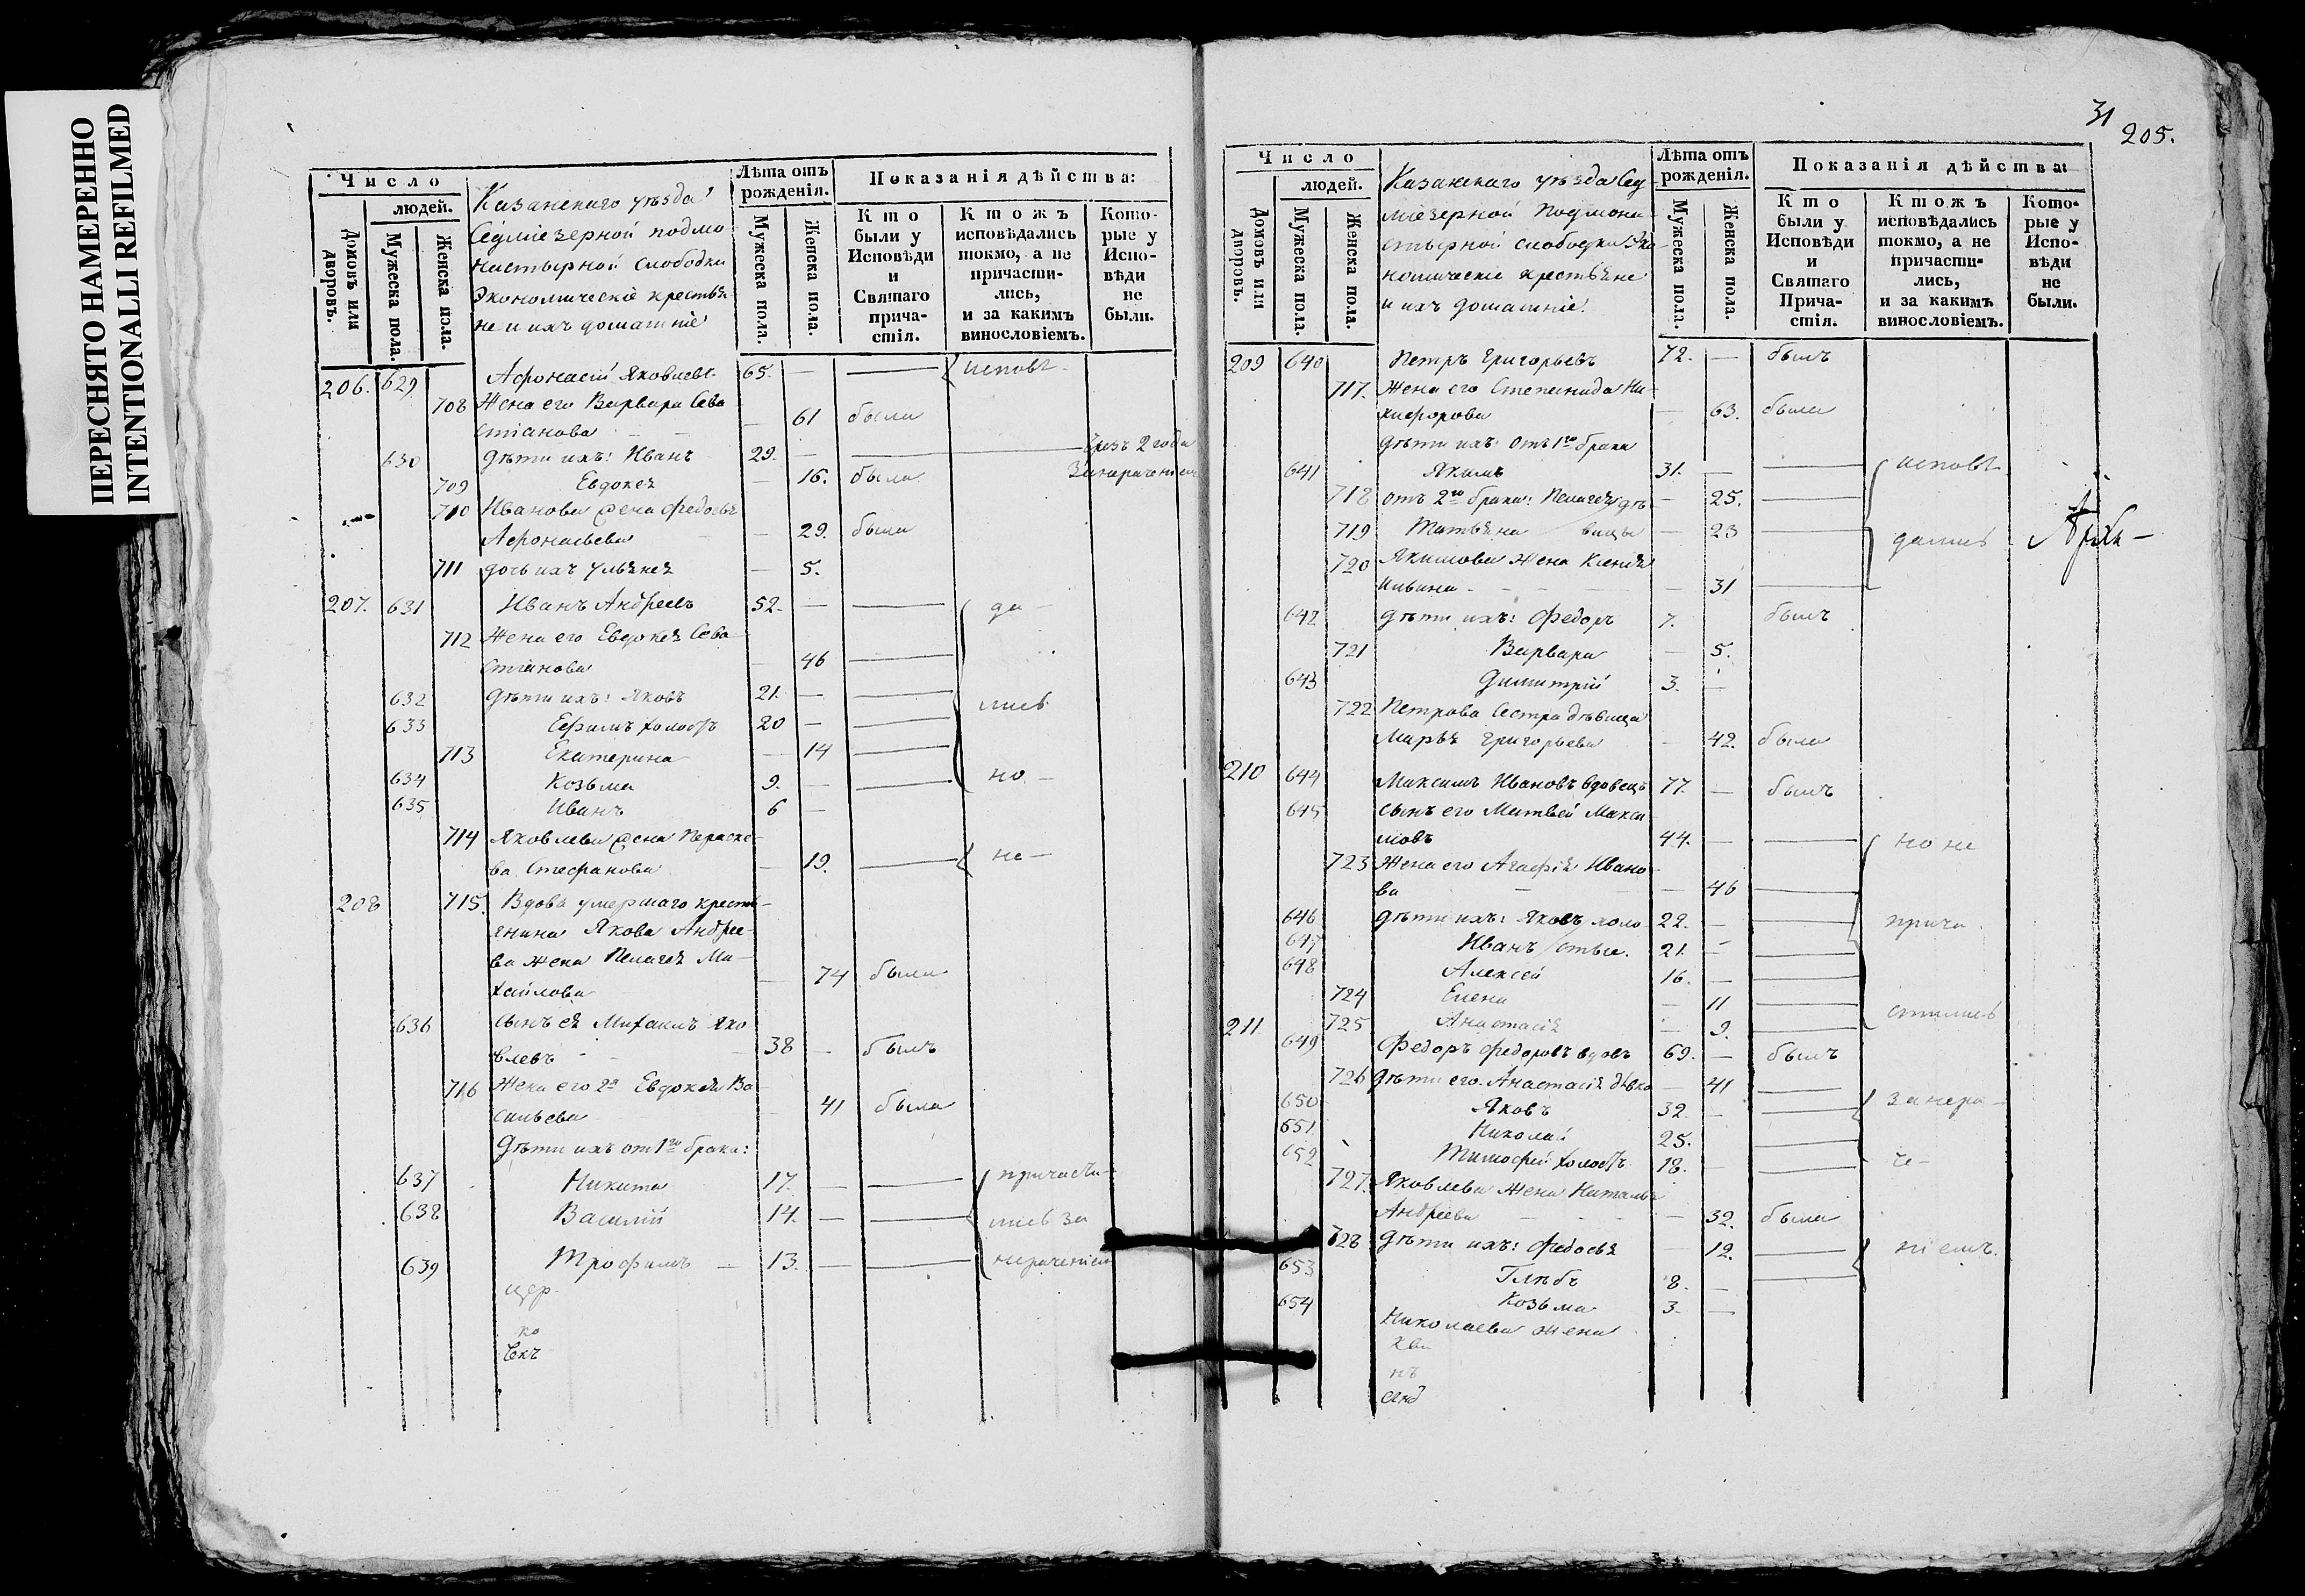 ПЕРЕСНЯТО НАМЕРЕННО
INTENTIONALLI REFILMED
Число
людей.
Домовъ или дворовъ.
Мужеска пола.
Женска пола.
Казанскаго уѣзда
Седміезерной подмо
настырной слободки
Экономическіе крестья
не и ихъ домашніе
Лѣта отъ рожденія.
Мужеска пола.
Женска пола.
Показанія дѣйства:
Кто были у Исповѣди и Святаго прича-стія.
Ктожъ исповѣдались токмо, а не причасти-лись, и за какимъ винословіемъ.
Кото-рые у Испо-вѣди не были.
206. 629 Афонасій Яковлевъ 65. — — исповѣ
708 Жена его Варвара Сева
стіанова — 61 была
630 дѣти ихъ: Иванъ 29. — — чрезъ 2 года
709 Евдокея — 16. была За нераченіем
710 Иванова жена Федосья
Афонасьева — 29. была
711 дочь ихъ Ульянея — 5.
207. 631 Иванъ Андреевъ 52. — — да —
712 Жена его Евдокея Сева
стіанова — 46 —
632 дѣти ихъ: Яковъ 21. — — лись
633 Ефимъ холостъ 20 — —
713 Екатерина — 14 —
634 Козьма 9. — — но —
635 Иванъ 6 —
714 Яковлева жена Параске
ва Стефанова — 19. — не —
208 715. Вдова умершаго кресть
янина Якова Андрее
ва жена Пелагея Ми
хайлова — 74 была
636 сынъ ея Михаилъ Яко
влевъ — 38 — былъ
716 Жена его 2я Евдокея Ва
сильева 41 была
Дѣти ихъ от 1го брака:
637 Никита 17. — — причасти
638 Василій 14. — — лись за
639 Трофимъ — 13. — — нераченіем
цер
ко
вкъ
31
205.
Число
людей.
Домовъ или дворовъ.
Мужеска пола.
Женска пола.
Казанскаго уѣзда Сед
міезерной Подмона
стырной слободки Эко
номическіе крестьяне
и ихъ домашніе.
Лѣта отъ рожденія.
Мужеска пола.
Женска пола.
Показанія дѣйства:
Кто были у Исповѣди и Святаго Прича-стія.
Ктожъ исповѣдались токмо, а не причасти-лись, и за какимъ винословіемъ.
Кото-рые у Испо-вѣди не были.
209 640 Петръ Григорьевъ 72. — былъ
717. Жена его Степанида Ни
кифорова — 63. была
дѣти ихъ: Отъ 1го брака
641 Якимъ 31. — — исповѣ
718 отъ 2го брака: Пелагея дѣ — 25. —
719 Татьяна вицы — 23 — дались
720 Якимова жена Ксенія
Ильина — 31 —
642 дѣти ихъ: Федоръ 7. былъ
721 Варвара — 5.
643 Димитрій 3. —
722 Петрова Сестра дѣвица
Марья Григорьева — 42. была
210 644 Максимъ Ивановъ вдовецъ 77. — былъ
645 сынъ его Матвей Макси
мовъ 44. — — но не
723 Жена его Агафія Ивано
ва — 46 —
646 дѣти ихъ: Яковъ холо 22. — — прича
647 Иванъ стые. 21. — —
648 Алексей 16. — —
724 Елена — 11 — стились
725 Анастасія — 9. —
211 649 Федоръ Федоровъ вдовъ 69. — былъ
726 дѣти его. Анастасія дѣвка — 41 —
650 Яковъ 32. — — за нера
651 Николай 25. —
652 Тимофей холостъ 18. — — че —
727. Яковлева жена Наталья
Андреева — 32. была
728 дѣти ихъ: Федосья 12. — ніемъ.
653 Глѣбъ 8. — —
654 Козьма 3. —
Николаева жена